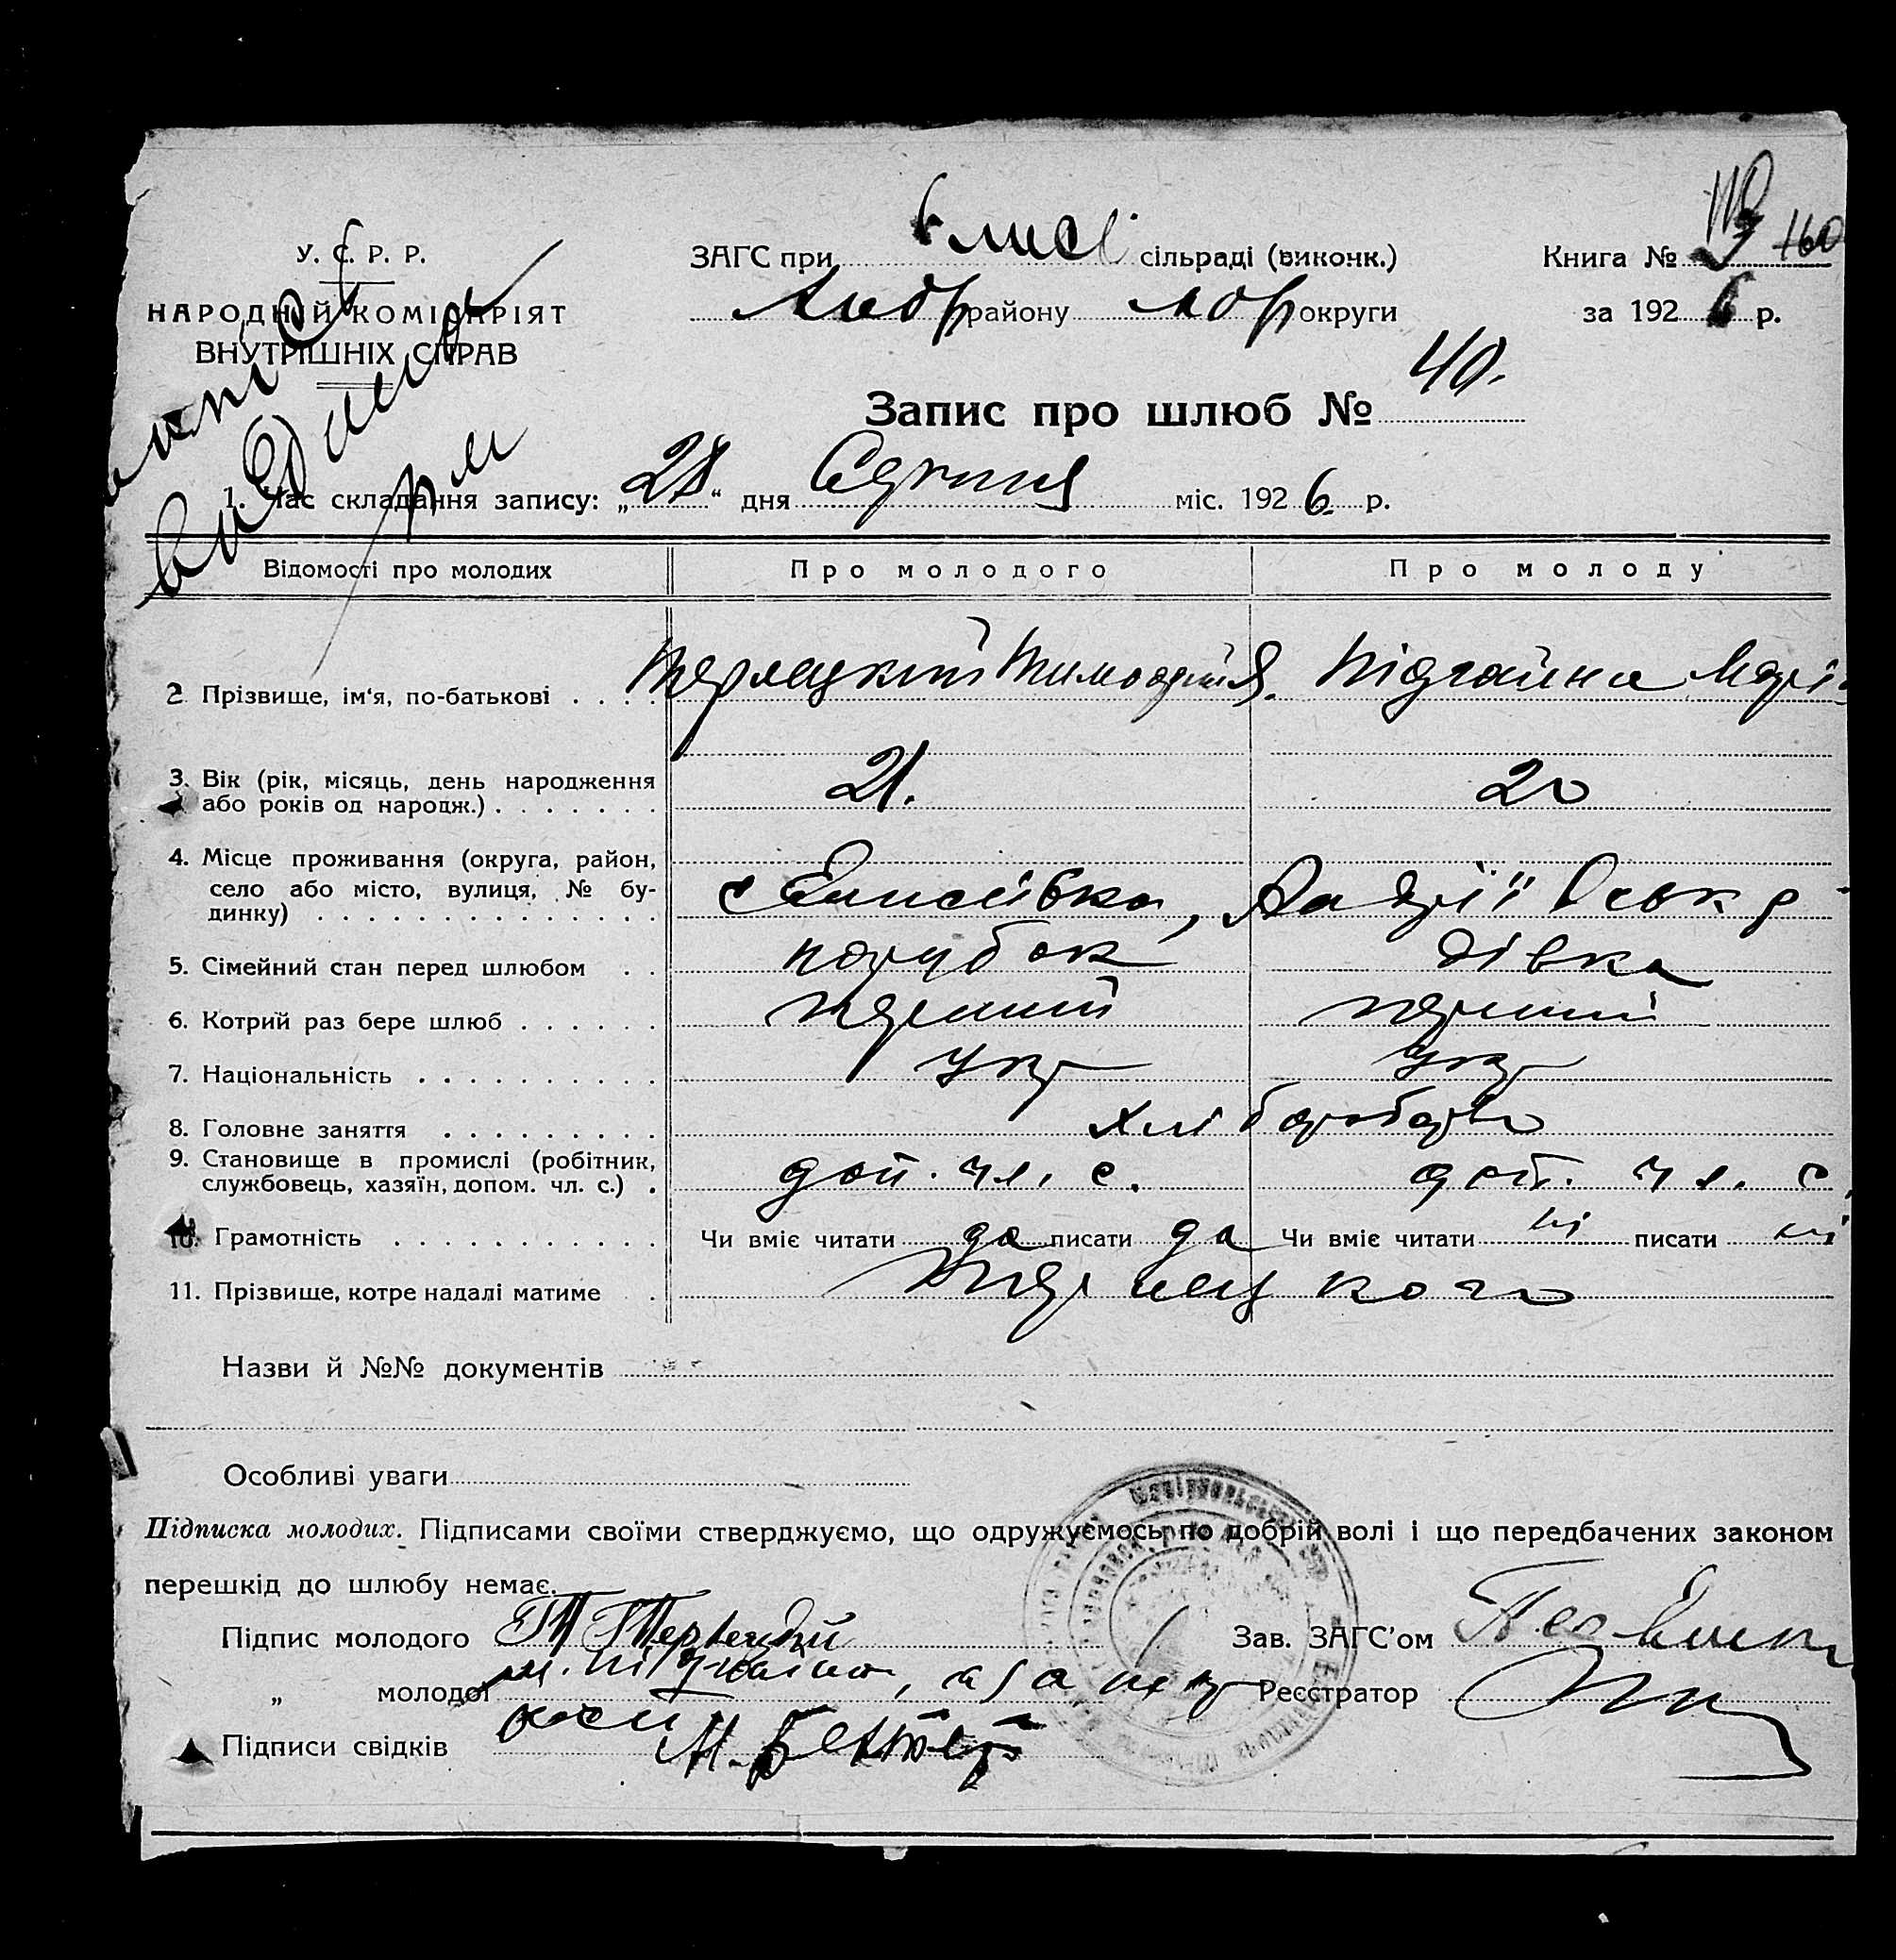 У. С. Р. Р.
НАРОДНІЙ КОМІСАРІЯТ
ВНУТРІШНІХ СПРАВ
ЗАГС при сільраді (виконк.)
району округи
Книга № 160
за 192 6 р.
Запис про шлюб № 40.
1. Час складання запису: „28“ дня Серпня міс. 192 6 р.
Відомості про молодих Про молодого Про молоду
2 Прізвище, ім‘я, по-батькові . . . . Терлецкий Тимофій Я. Підгайна Марія
3. Вік (рік, місяць, день народження
або років од народж.) . . . . . . . 21. 20
4. Місце проживання (округа, район,
село або місто, вулиця, № бу-
динку) . . . . . . . . . . . . . . с Елисеївка,
5. Сімейний стан перед шлюбом . . парубок дівка
6. Котрий раз бере шлюб . . . . . . перший перший
7. Національність . . . . . . . . . . укр укр
8. Головне заняття . . . . . . . . . хліборобство
9. Становище в промислі (робітник,
службовець, хазяїн, допом. чл. с.) . доп. чл. с. доп. чл. с.
10. Грамотність . . . . . . . . . . . Чи вміє читати да писати да Чи вміє читати ні писати ні
11. Прізвище, котре надалі матиме . Терлецкого
Назви й №№ документів
Особливі уваги
Підписка молодих. Підписами своїми стверджуємо, що одружуємось по добрій волі і що передбачених законом
перешкід до шлюбу немає.
Підпис молодого Т Терлецкий
Зав. ЗАГС'ом
„ молодої м. підгайна, а за неї
Реєстратор
Підписи свідків